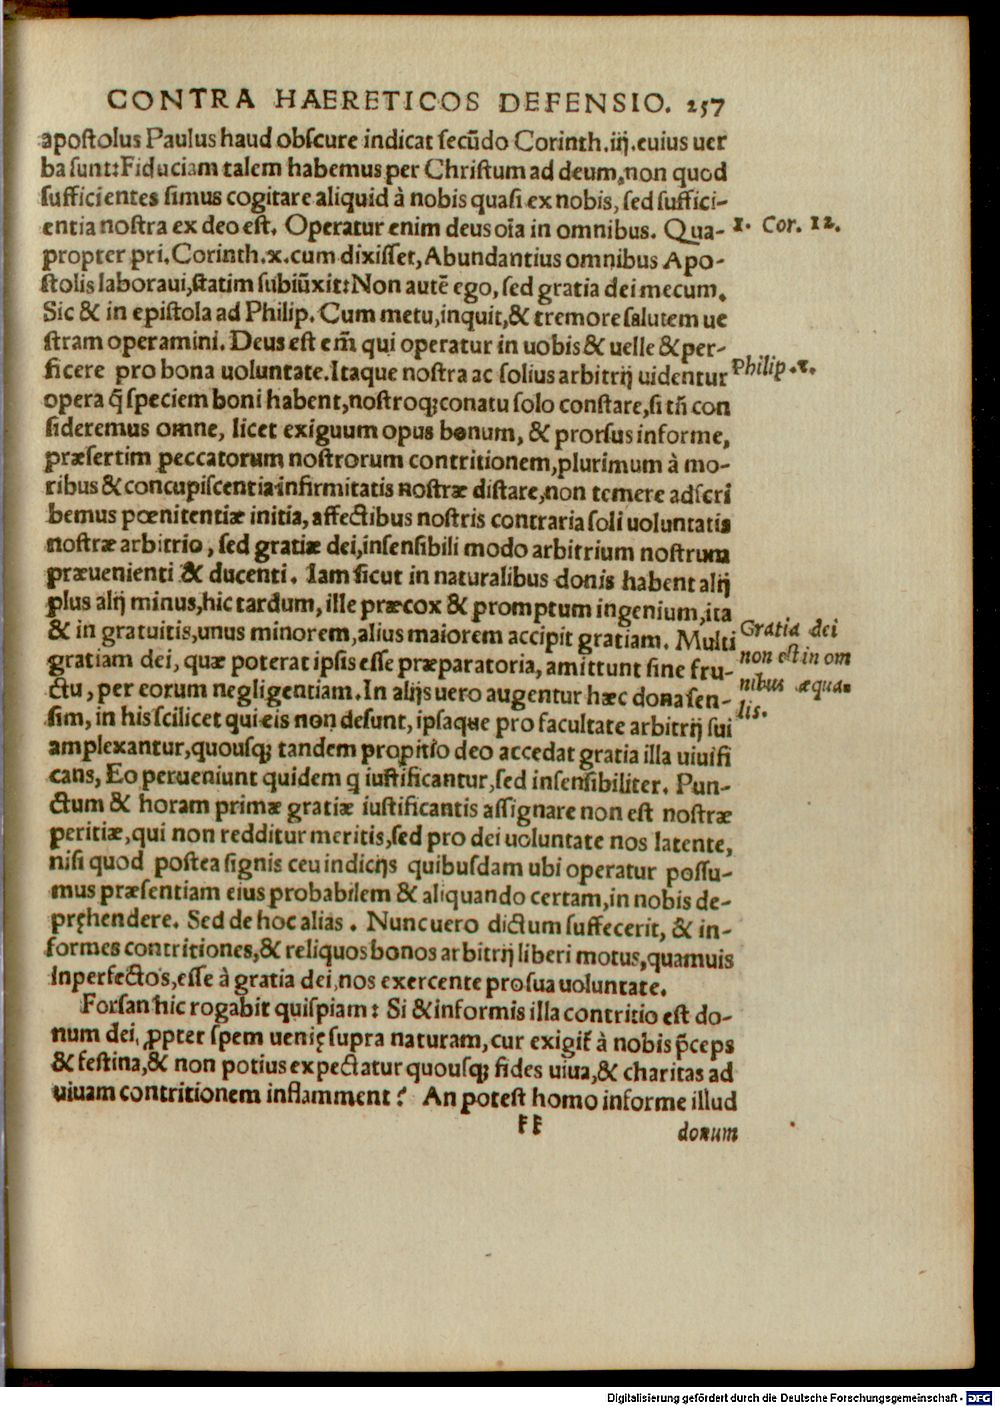 CONTRA HAERETICOS DEFENSIO. 257
apostolus Paulus haud obscure indicat secũdo Corinth.iij.cuius uer
ba sunt:Fiduciam talem habemus per Christum ad deum,non quod
sufficientes simus cogitare aliquid à nobis quasi ex nobis, sed suffici-
entia nostra ex deo est. Operatur enim deus oĩa in omnibus. Qua-
1. Cor. 12.
propter pri.Corinth.x.cum dixisset,Abundantius omnibus Apo-
stolis laboraui,statim subiũxit:Non autẽ ego, sed gratia dei mecum.
Sic & in epistola ad Philip. Cum metu,inquit,& tremore salutem ue
stram operamini. Deus est em̃ qui operatur in uobis & uelle & per-
ficere pro bona uoluntate.Itaque nostra ac solius arbitrij uidentur
Philip.2.
opera q̃ speciem boni habent,nostroq; conatu solo constare,si tñ con
sideremus omne, licet exiguum opus bonum, & prorsus informe,
præsertim peccatorum nostrorum contritionem,plurimum à mo-
ribus & concupiscentia infirmitatis nostræ distare,non temere adscri
bemus pœnitentiæ initia, affectibus nostris contraria soli uoluntatis
nostræ arbitrio, sed gratiæ dei,insensibili modo arbitrium nostrum
præuenienti & ducenti. Iam sicut in naturalibus donis habent alij
plus alij minus,hic tardum, ille præcox & promptum ingenium,ita
& in gratuitis,unus minorem,alius maiorem accipit gratiam. Multi
Gratia dei
gratiam dei, quæ poterat ipsis esse præparatoria, amittunt sine fru-
non est in om
ctu, per eorum negligentiam. In alijs uero augentur hæc dona sen-
nibus æqua-
sim, in his scilicet qui eis non desunt, ipsaque pro facultate arbitrij sui
lis.
amplexantur,quousq; tandem propitio deo accedat gratia illa uiuifi
cans, Eo perueniunt quidem q iustificantur,sed insensibiliter. Pun-
ctum & horam primæ gratiæ iustificantis assignare non est nostræ
peritiæ,qui non redditur meritis,sed pro dei uoluntate nos latente,
nisi quod postea signis ceu indicijs quibusdam ubi operatur possu-
mus præsentiam eius probabilem & aliquando certam,in nobis de-
pręhendere. Sed de hoc alias. Nunc uero dictum suffecerit, & in-
formes contritiones,& reliquos bonos arbitrij liberi motus,quamuis
inperfectos,esse à gratia dei,nos exercente pro sua uoluntate.
Forsan hic rogabit quispiam: Si & informis illa contritio est do-
num dei, ꝓpter spem uenię supra naturam, cur exigit᷑ à nobis p̃ceps
& festina,& non potius expectatur quousq; fides uiua,& charitas ad
uiuam contritionem inflamment? An potest homo informe illud
donum
Digitalisierung gefördert durch die Deutsche Forschungsgemeinschaft - DFG